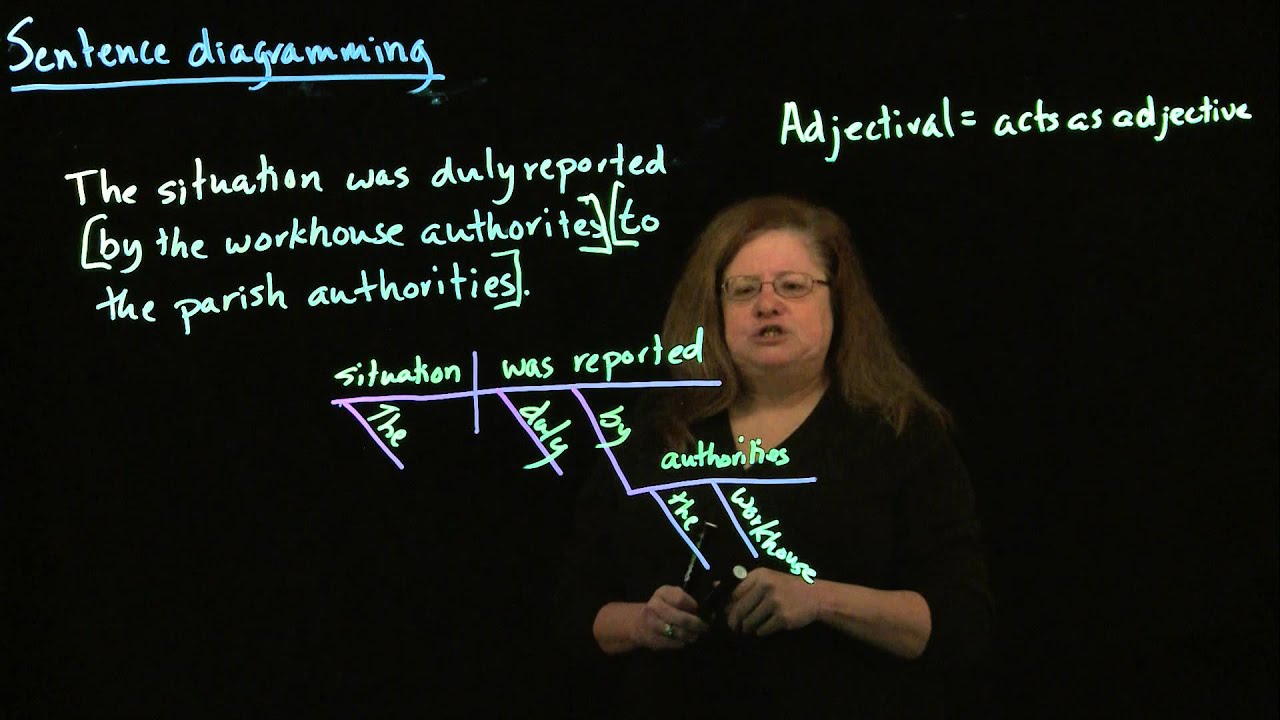 Sentence diagramming
Adjectival = acts as adjective
The situation was duly reported
[by the workhouse authorites] [to
the parish authorities].
situation was reported
The
duly
by
authorities
the
workhouse